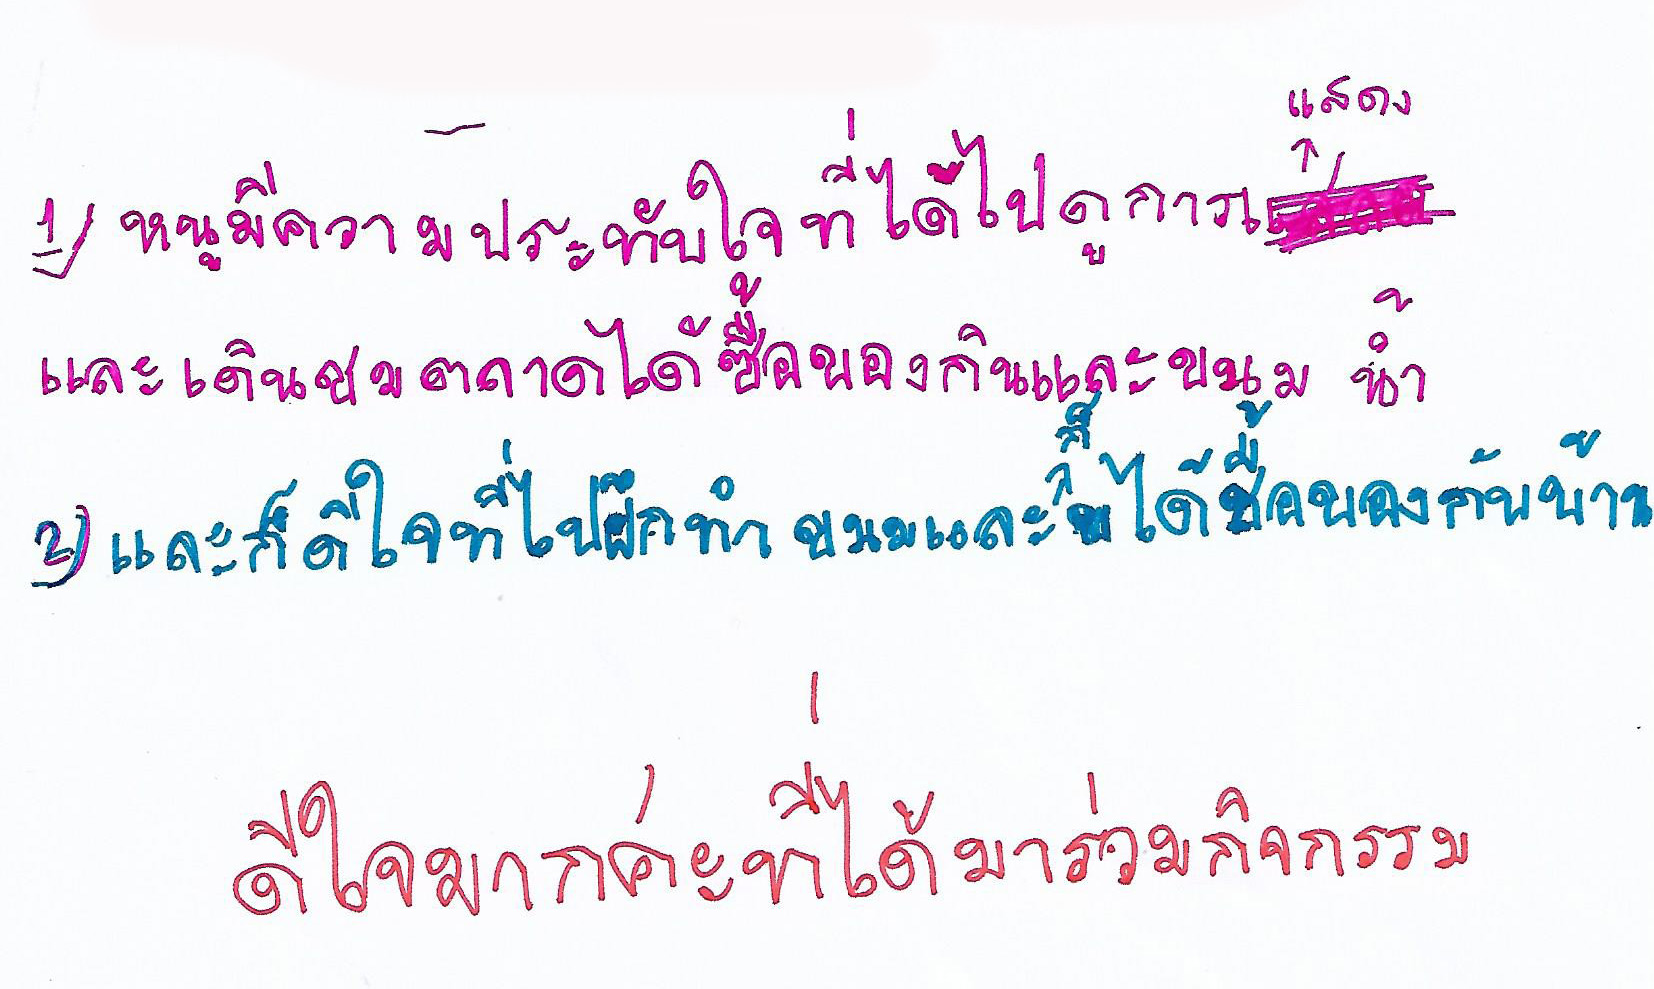 1) หนูมีความประทับใจที่ได้ไปดูการแสดง
และเดินชมตลาดได้ซื้อของกินและขนม น้ำ
2) และก็ดีใจที่ไปฝึกทำ ขนมและก็ได้ซื้อของกับบ้าน
ดีใจมากค่ะที่ได้มาร่วมกิจกรรม